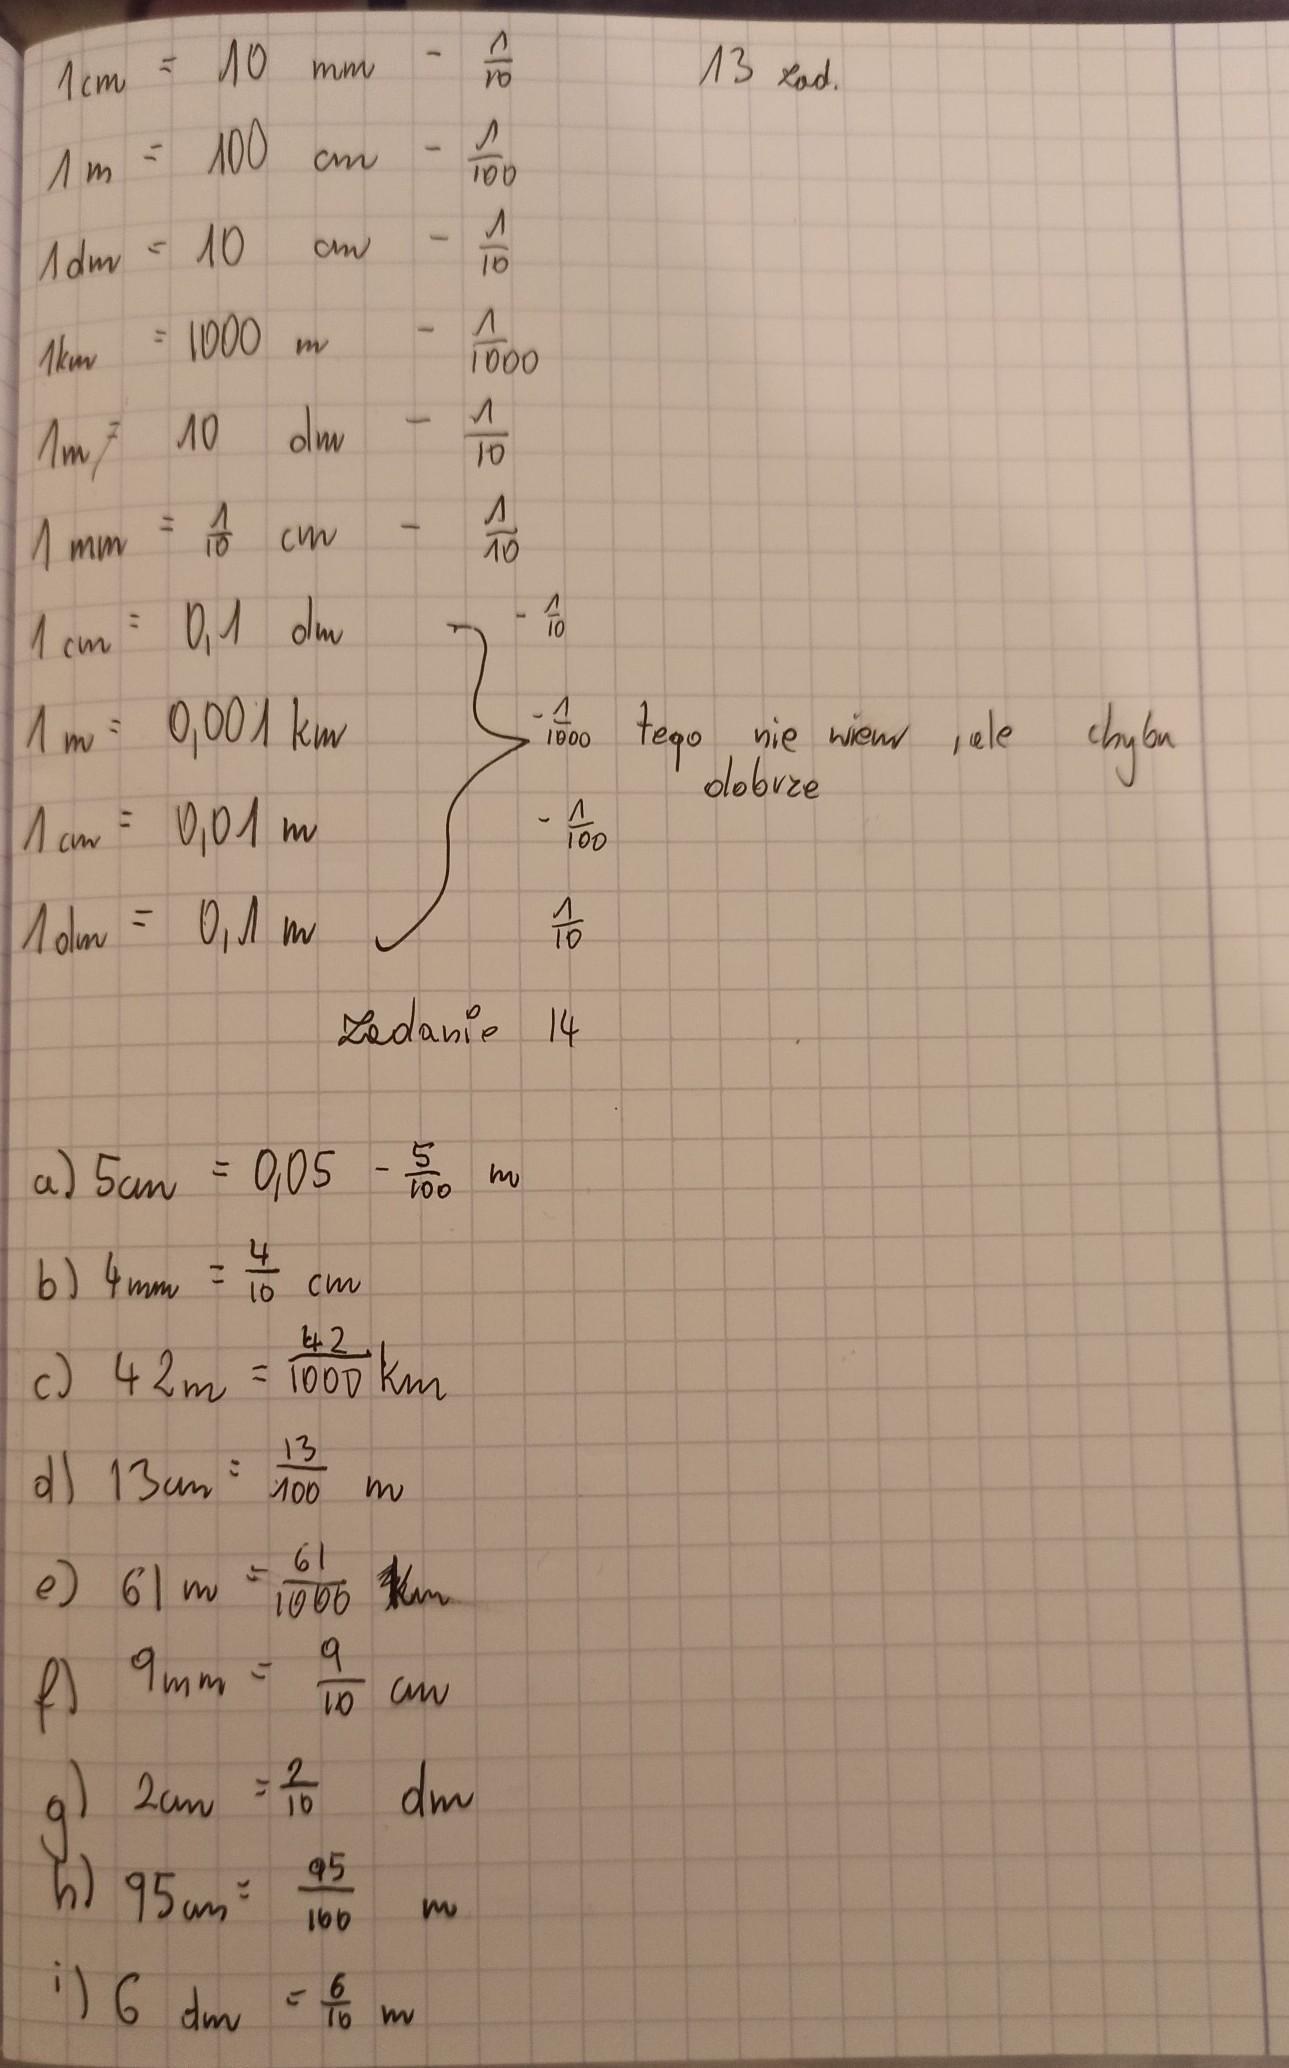 1cm = 10 mm - 1/10 13 zad.
1m = 100 cm - 1/100
1dm = 10 cm - 1/10
1km = 1000 m - 1/1000
1m = 10 dm - 1/10
1mm = 1/10 cm - 1/10
1cm = 0,1 dm - 1/10
1m = 0,001 km - 1/1000 tego nie wiem , ale chyba
dobrze
1cm = 0,01 m - 1/100
1dm = 0,1 m 1/10
Zadanie 14
a) 5cm = 0,05 - 5/100 m
b) 4mm = 4/10 cm
c) 42m = 42/1000 km
d) 13cm = 13/100 m
e) 61m = 61/1000 km
f) 9mm = 9/10 cm
g) 2cm = 2/10 dm
h) 95cm = 95/100 m
i) 6 dm = 6/10 m